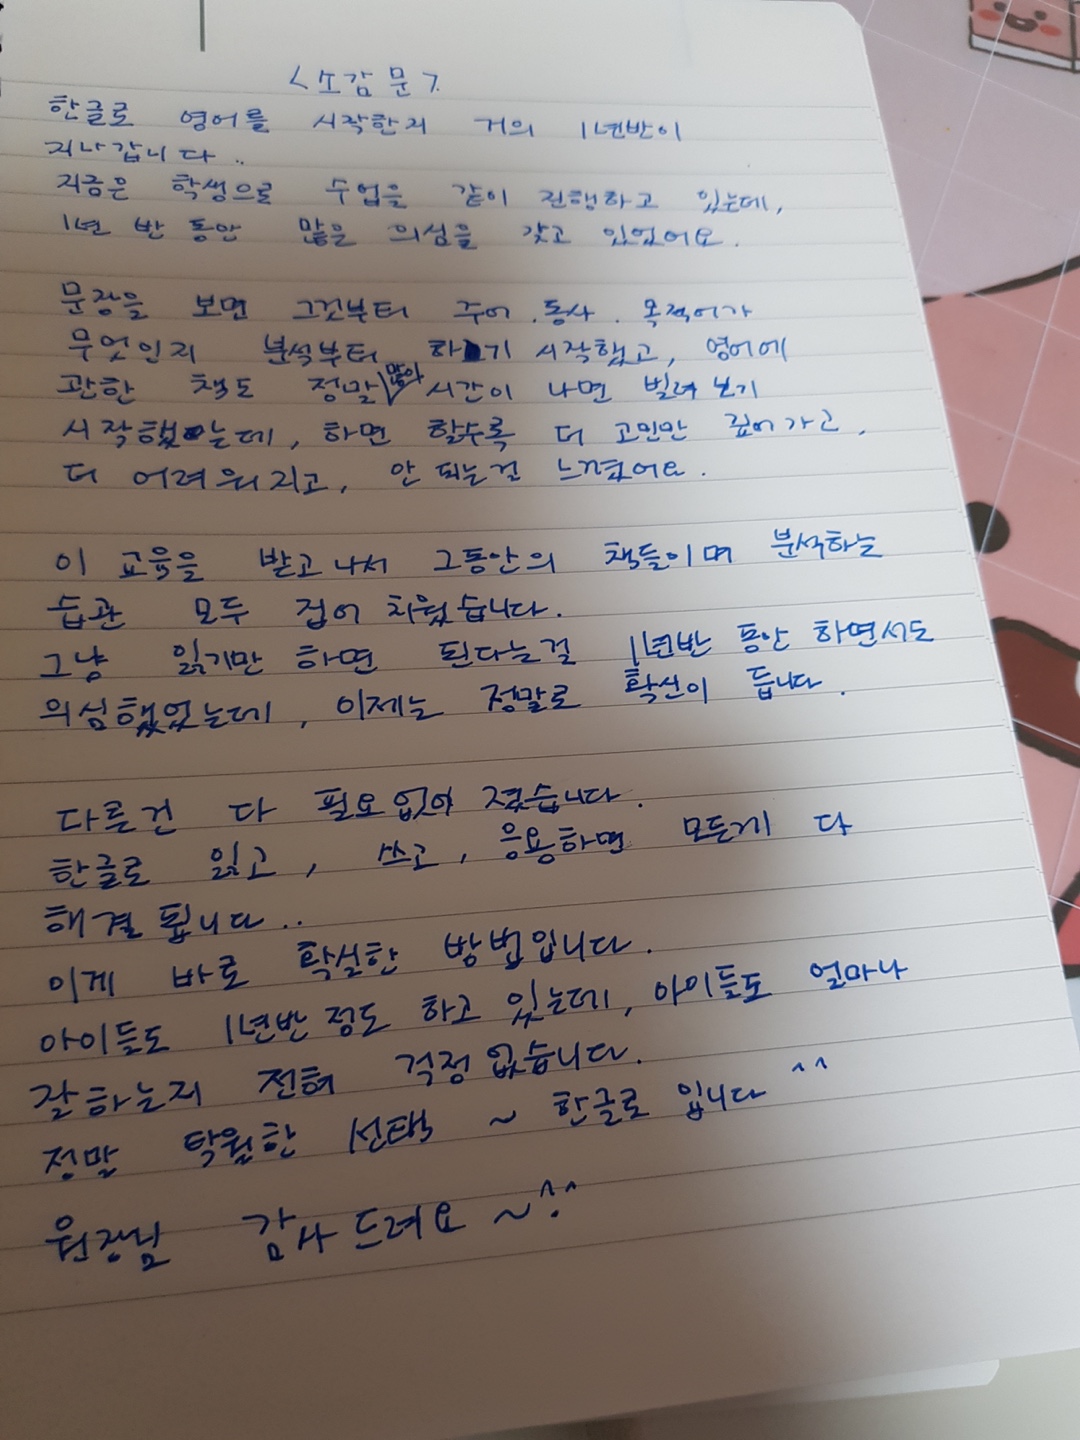 <소감문>
한글로 영어를 시작한지 거의 1년반이
지나갑니다..
지금은 학생으로 수업을 같이 진행하고 있는데,
1년 반 동안 많은 의심을 갖고 있었어요.
문장을 보면 그것부터 주어.동사.목적어가
무엇인지 분석부터 하기 시작했고, 영어에
관한 책도 정말 많아 시간이 나면 빌려 보기
시작했는데, 하면 할수록 더 고민만 깊어가고,
더 어려워지고, 안 되는걸 느꼈어요.
이 교육을 받고나서 그동안의 책들이며 분석하는
습관 모두 접어 치웠습니다.
그냥 읽기만 하면 된다는걸 1년반 동안 하면서도
의심했었는데, 이제는 정말로 확신이 듭니다.
다른건 다 필요없어 졌습니다.
한글로 읽고, 쓰고, 응용하면 모든게 다
해결 됩니다..
이게 바로 확실한 방법입니다.
아이들도 1년반 정도 하고 있는데, 아이들도 얼마나
잘하는지 전혀 걱정없습니다.
정말 탁월한 선택 ~ 한글로 입니다 ^^
원장님 감사드려요 ~^^